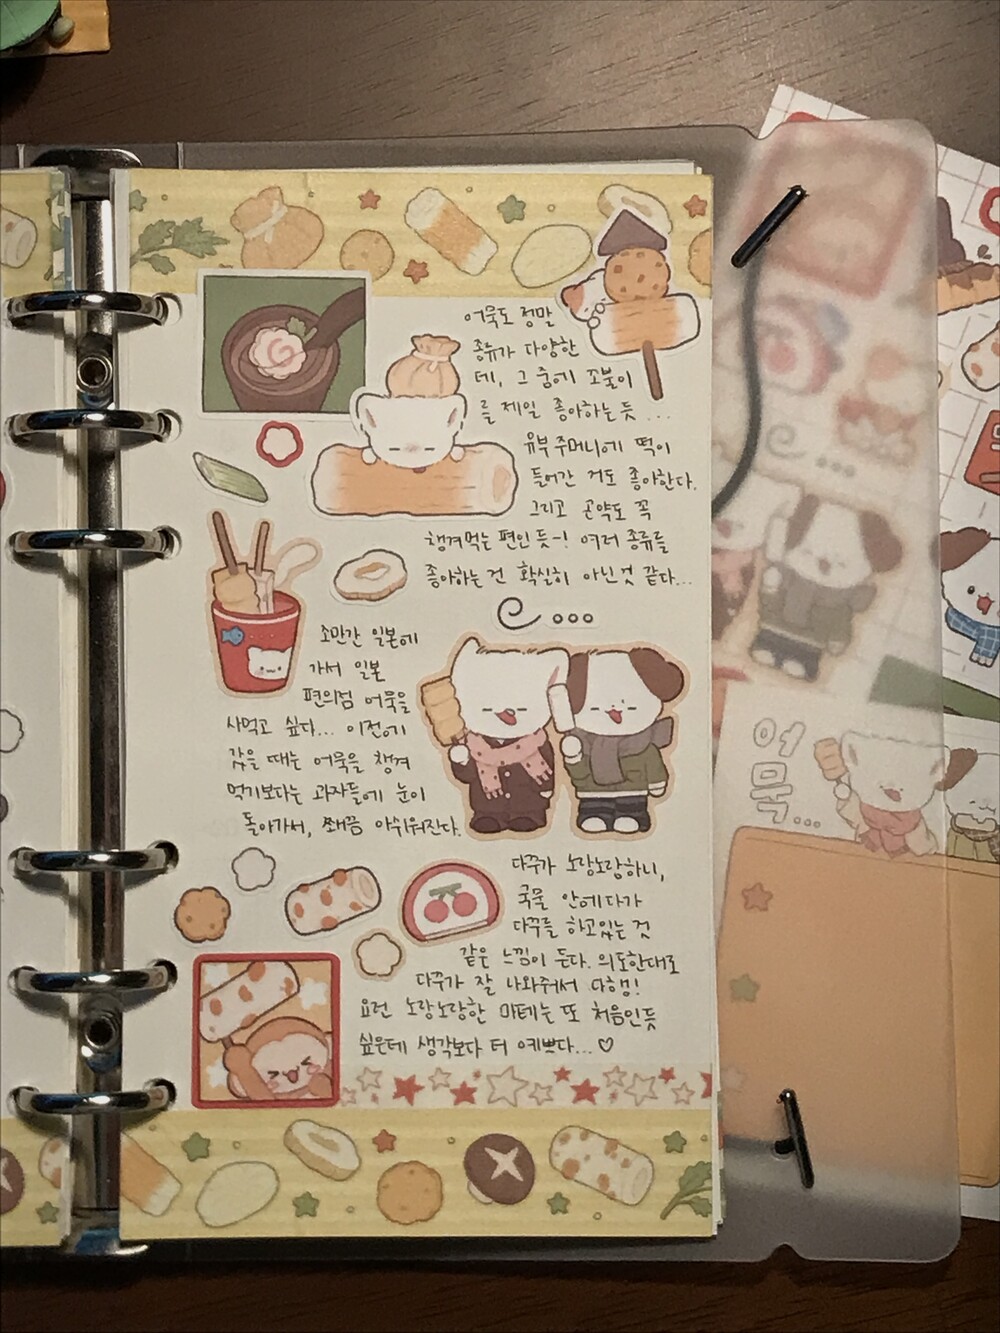 어묵도 정말
종류가 다양한
데, 그 중에 쪼불이
를 제일 좋아하는 듯 ...
유부 주머니에 떡이
들어간 것도 좋아한다.
그리고 곤약도 꼭
챙겨먹는 편인 듯~! 여러 종류를
좋아하는 건 확실히 아닌 것 같다...
조만간 일본에
가서 일본
편의점 어묵을
사먹고 싶다... 이전에
갔을 때는 어묵을 챙겨
먹기보다는 과자들에 눈이
돌아가서, 쬐끔 아쉬워진다.
다꾸가 노랑노랑하니,
국물 안에다가
다꾸를 하고있는 것
같은 느낌이 든다. 의도한대로
다꾸가 잘 나와줘서 다행!
요런 노랑노랑한 마테는 또 처음인듯
싶은데 생각보다 더 예쁘다... ♡
어
묵...